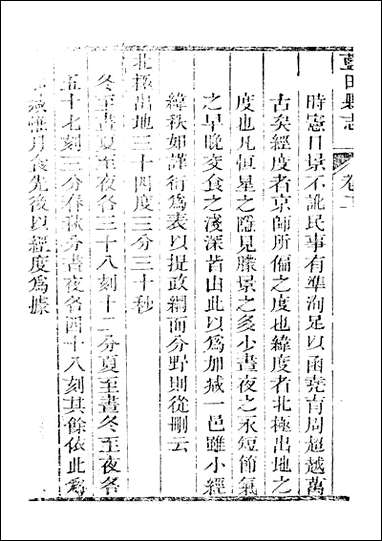 藍田縣志 卷二
時憲日景不訛民事有準洵足以函堯育周超越萬
古矣經度者京師所偏之度也緯度者北極出地之
度也凡恒星之隱見朦景之多少晝夜之永短節氣
之早晚交食之淺深皆由此以為加減一邑雖小經
緯秩如謹衍為表以提政綱而分野則從刪云
北極出地三十四度三分三十秒
冬至晝夏至夜各三十八刻十二分夏至晝冬至夜各
五十七刻三分春秋分晝夜各四十八刻其餘依此為
減惟月食先後以經度為據